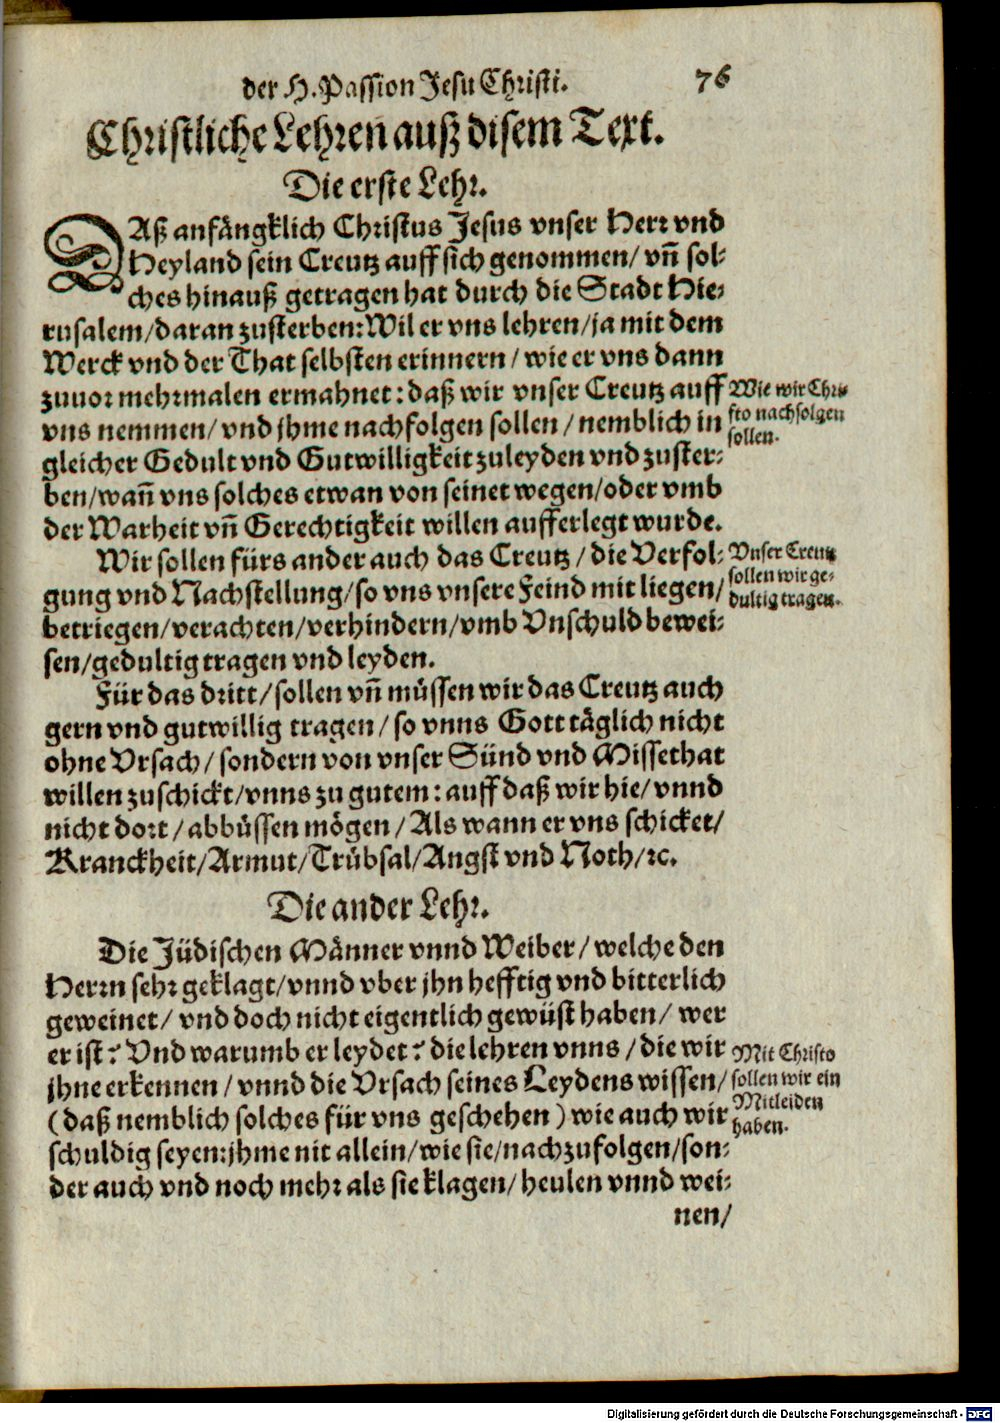 der H. Passion Jesu Christi. 76
Christliche Lehren auß disem Text.
Die erste Lehr.
DAß anfängklich Christus Jesus vnser Herr vnd
Heyland sein Creutz auff sich genommen/ vñ sol-
ches hinauß getragen hat durch die Stadt Hie-
rusalem/daran zusterben: Wil er vns lehren/ja mit dem
Werck vnd der That selbsten erinnern/ wie er vns dann
zuuor mehrmalen ermahnet: daß wir vnser Creutz auff
vns nemmen/ vnd jhme nachfolgen sollen/ nemblich in
gleicher Gedult vnd Gutwilligkeit zuleyden vnd zuster-
ben/wañ vns solches etwan von seinet wegen/oder vmb
der Warheit vñ Gerechtigkeit willen aufferlegt wurde.
Wie wir Chri-
sto nachfolgen
sollen.
Wir sollen fürs ander auch das Creutz/ die Verfol-
gung vnd Nachstellung/so vns vnsere Feind mit liegen/
betriegen/verachten/verhindern/vmb Vnschuld bewei-
sen/gedultig tragen vnd leyden.
Vnser Creutz
sollen wir ge-
dultig tragen.
Für das dritt/ sollen vñ müssen wir das Creutz auch
gern vnd gutwillig tragen/ so vnns Gott täglich nicht
ohne Vrsach/ sondern von vnser Sünd vnd Missethat
willen zuschickt/vnns zu gutem: auff daß wir hie/ vnnd
nicht dort/ abbüssen mögen/ Als wann er vns schicket/
Kranckheit/Armut/Trübsal/Angst vnd Noth/ꝛc.
Die ander Lehr.
Die Jüdischen Männer vnnd Weiber/ welche den
Herrn sehr geklagt/vnnd vber jhn hefftig vnd bitterlich
geweinet/ vnd doch nicht eigentlich gewüst haben/ wer
er ist? Vnd warumb er leydet? die lehren vnns/ die wir
jhne erkennen/ vnnd die Vrsach seines Leydens wissen/
(daß nemblich solches für vns geschehen) wie auch wir
schuldig seyen: jhme nit allein/wie sie/nachzufolgen/son-
der auch vnd noch mehr als sie klagen/ heulen vnnd wei-
Mit Christo
sollen wir ein
Mitleiden
haben.
nen/
Digitalisierung gefördert durch die Deutsche Forschungsgemeinschaft - DFG